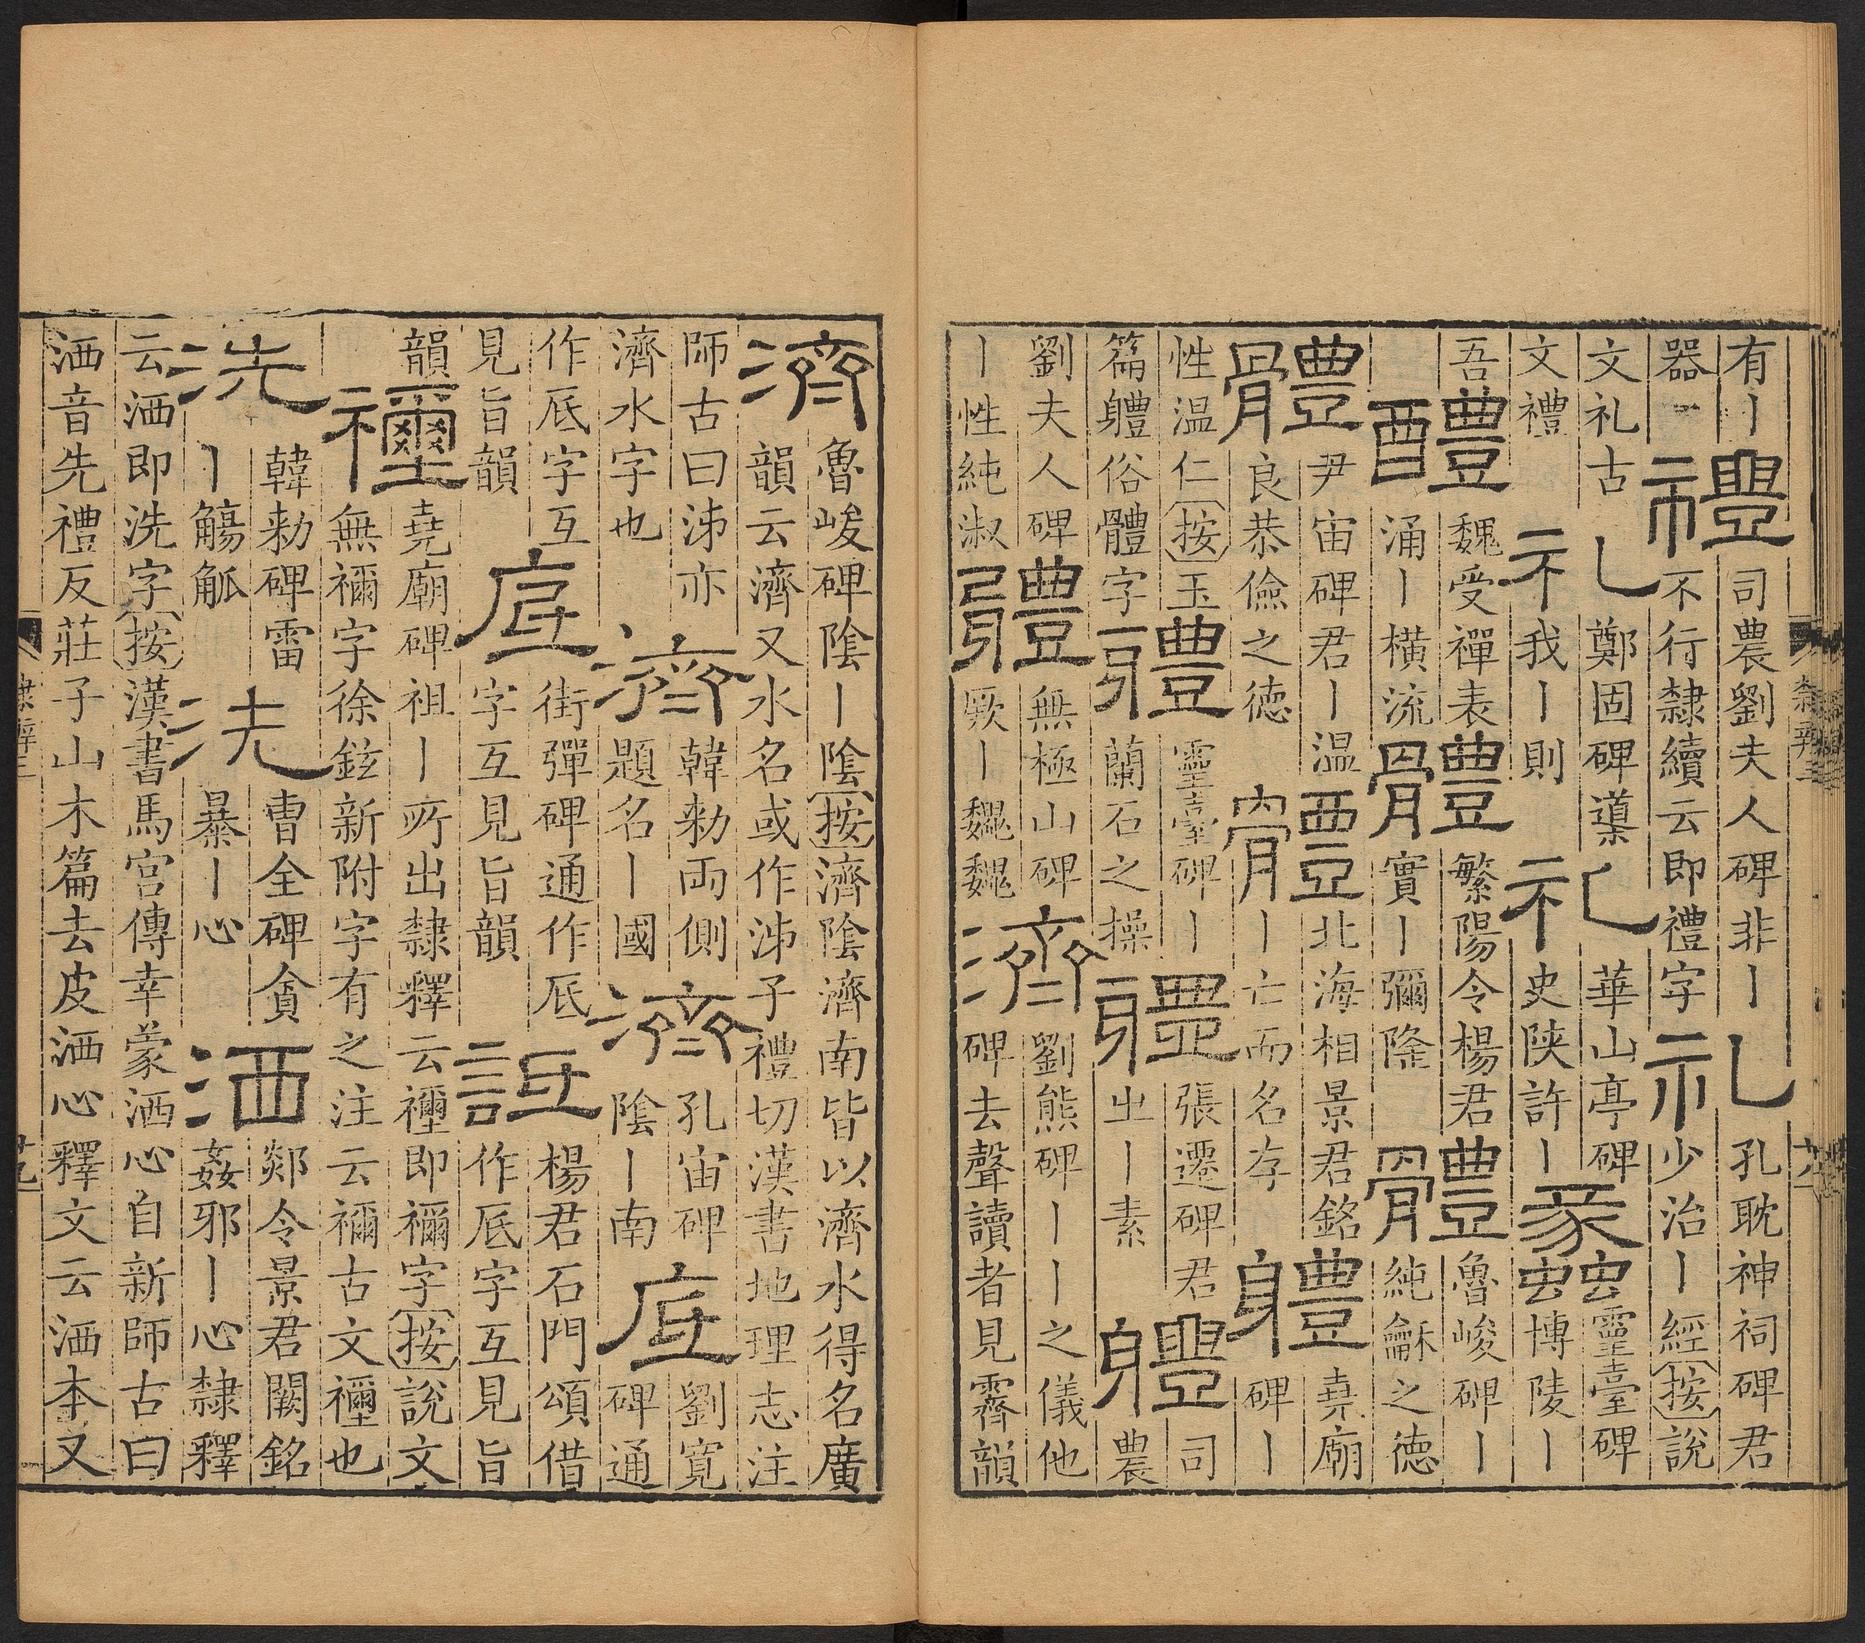 有丨器禮司農劉夫人碑非丨不行隸續云即禮字礼孔耽神祠碑君少治丨經按說
文礼古文禮礼鄭固碑導我丨則礼華山亭碑史陝許丨蠡靈臺碑博陵丨
吾醴魏受禪表涌丨橫流體繁陽令楊君實丨彌隆體魯峻碑丨純龢之德
體尹宙碑君丨溫良恭儉之德體北海相景君銘丨亡而名存軆堯廟碑丨
性溫仁按玉篇軆俗體字軆靈臺碑丨蘭石之操軆張遷碑君㞢丨素軆司農
劉夫人碑丨性純淑體無極山碑厥丨魏魏濟劉熊碑丨丨之儀他碑去聲讀者見霽韻
濟魯峻碑陰丨陰按濟陰濟南皆以濟水得名廣韻云濟又水名或作泲子禮切漢書地理志注
師古曰泲亦濟水字也濟韓勑兩側題名丨國濟孔宙碑陰丨南底劉寬碑通
作厎字互見旨韻底街彈碑通作厎字互見旨韻詆楊君石門頌借作厎字互見旨
韻禰堯廟碑祖丨所出隸釋云禰即禰字按說文無禰字徐鉉新附字有之注云禰古文禰也
洗韓勑碑雷丨觴觚洗曹全碑貪暴丨心洒郯令景君闕銘姦邪丨心隸釋
云洒即洗字按漢書馬宮傳幸蒙洒心自新師古曰洒音先禮反莊子山木篇去皮洒心釋文云洒本又